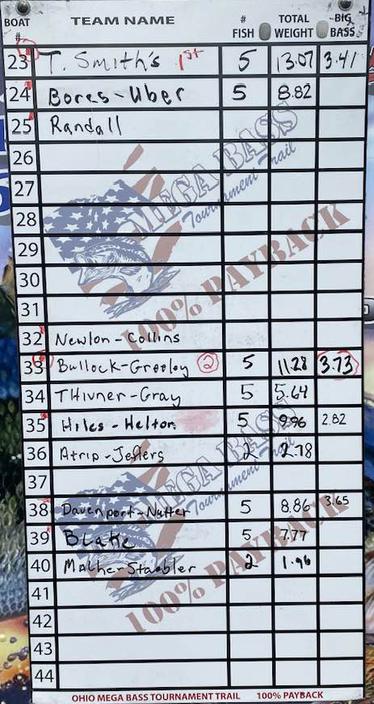 BOAT # TEAM NAME # FISH TOTAL WEIGHT BIG BASS
23 T. Smith's 1st 5 13.07 3.41
24 Bores-Uber 5 8.82
25 Randall
26
27
28
29
30
31
32 Newlon-Collins
33 Bullock-Greeley 2 5 11.28 3.73
34 THivner-Gray 5 5.64
35 Hiles-Helton 5 9.96 2.82
36 Atrip-Jeffers 2 2.78
37
38 Davenport-Nutter 5 8.86 3.65
39 Blake 5 7.77
40 Molher Staebler 2 1.96
41
42
43
44
MEGA BASS
Tournament Trail
100% PAYBACK
MEGA BASS
Tournament Trail
100% PAYBACK
OHIO MEGA BASS TOURNAMENT TRAIL 100% PAYBACK